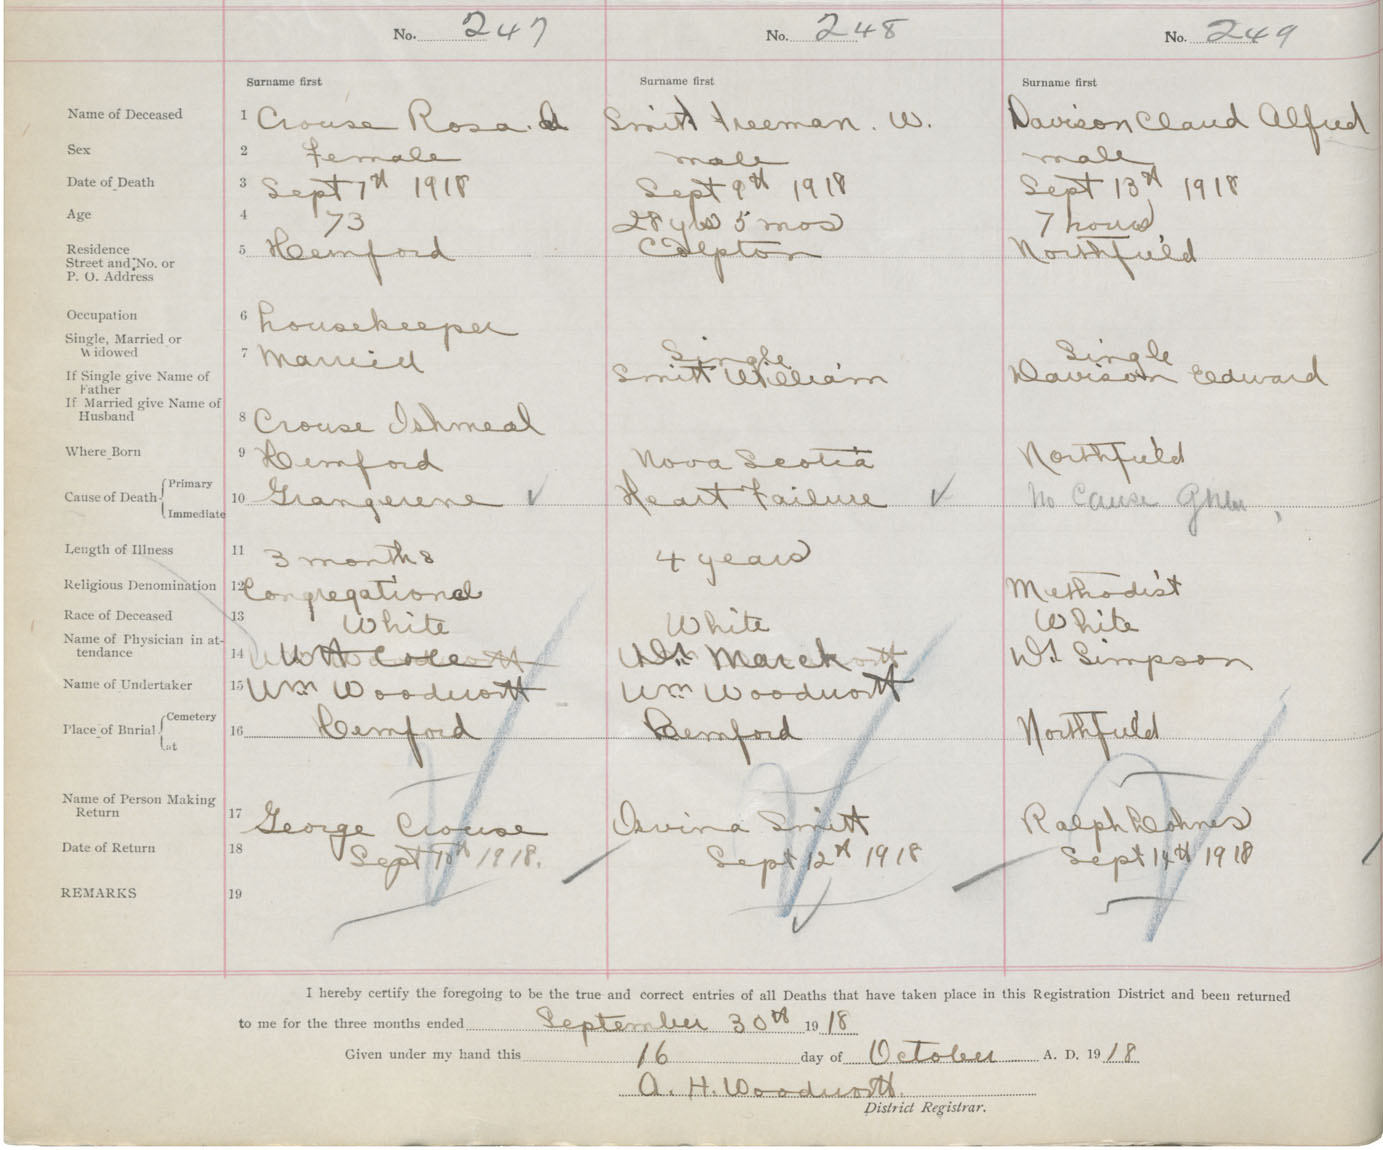 No. 247 No. 248 No. 249
Surname first Surname first Surname first
Name of Deceased 1 Crouse Rosa. A Smith Freeman. W. Davison Claud Alfred
Sex 2 Female male male
Date of Death 3 Sept 7th 1918 Sept 9th 1918 Sept 13th 1918
Age 4 73 28 yrs 5 mos 7 hours
Residence 5 Hemford Colpton Northfield
Street and No. or
P. O. Address
Occupation 6 housekeeper
Single, Married or
Widowed 7 Married Single Single
If Single give Name of
Father Smith William Davison Edward
If Married give Name of
Husband 8 Crouse Ishmeal
Where Born 9 Hemford Nova Scotia Northfield
Cause of Death Primary
10 Grangerene Heart Failure No Cause Given
Immediate
Length of Illness 11 3 months 4 years
Religious Denomination 12 Congregational Methodist
Race of Deceased 13 White White White
Name of Physician in at-
tendance 14 Cole Marck Dr Simpson
Name of Undertaker 15 Wm Woodworth Wm Woodworth
Place of Burial Cemetery
16 Hemford Hemford Northfield
at
Name of Person Making
Return 17 George Crouse Smith Ralph Dohnes
Date of Return 18 Sept 10th 1918. Sept 12th 1918 Sept 14th 1918
REMARKS 19
I hereby certify the foregoing to be the true and correct entries of all Deaths that have taken place in this Registration District and been returned
to me for the three months ended September 30th 1918
Given under my hand this 16 day of October A. D. 1918
A. H. Woodworth.
District Registrar.